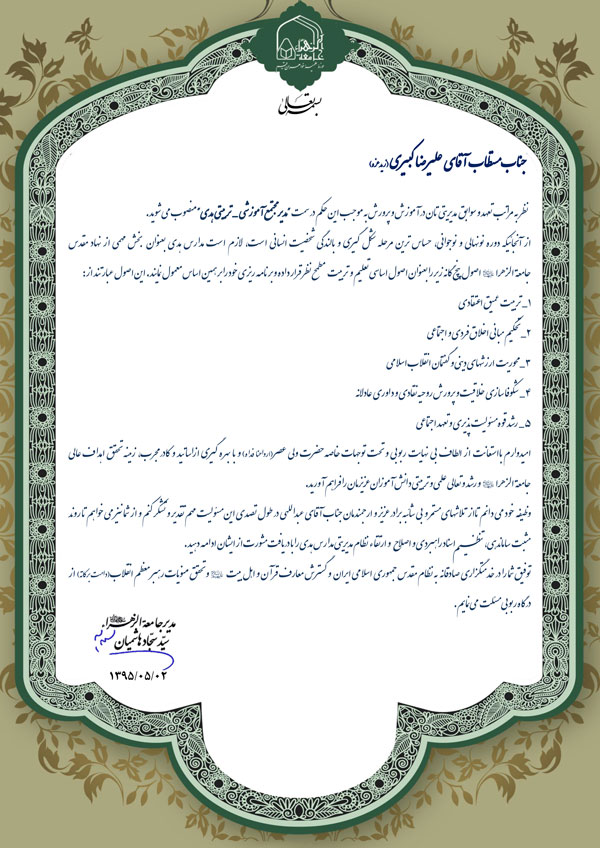 بسمه تعالی
جناب مستطاب آقای علیرضا کبیری (زید عزه)
نظر به مراتب تعهد و سوابق مدیریتی تان در آموزش و پرورش به موجب این حکم در سمت "مدیر مجتمع آموزشی ـ تربیتی هدی" منصوب می شوید.
از آنجائیکه دوره نونهالی و نوجوانی، حساس ترین مرحله شکل گیری و بالندگی شخصیت انسانی است، لازم است مدارس هدی بعنوان بخش مهمی از نهاد مقدس
جامعة الزهرا اصول پنج گانه زیر را بعنوان اصول اساسی تعلیم و تربیت مطمح نظر قرار داده و برنامه ریزی خود را بر همین اساس معمول نمایند. این اصول عبارتند از:
۱ـ تربیت عمیق اعتقادی
۲ـ تحکیم مبانی اخلاق فردی و اجتماعی
۳ـ محوریت ارزشهای دینی و گفتمان انقلاب اسلامی
۴ـ شکوفاسازی خلاقیت و پرورش روحیه نقادی و داوری عادلانه
۵ـ رشد قوه مسئولیت پذیری و تعهد اجتماعی
امیدوارم با استعانت از الطاف بی نهایت ربوبی و تحت توجهات خاصه حضرت ولی عصر (ارواحنا فداه) و با بهره گیری از اساتید و کادر مجرب، زمینه تحقق اهداف عالی
جامعة الزهرا و رشد و تعالی علمی و تربیتی دانش آموزان عزیزمان را فراهم آورید.
وظیفه خود می دانم تا از تلاشهای مستمر و بی شائبه برادر عزیز و ارجمندمان جناب آقای عبداللهی در طول تصدی این مسئولیت مهم تقدیر و تشکر کنم و از شما نیز می خواهم تا روند
مثبت ساماندهی، تنظیم اسناد راهبردی و اصلاح و ارتقاء نظام مدیریتی مدارس هدی را با دریافت مشورت از ایشان ادامه دهید.
توفیق شما را در خدمتگزاری صادقانه به نظام مقدس جمهوری اسلامی ایران و گسترش معارف قرآن و اهل بیت و تحقق منویات رهبر معظم انقلاب (دامت برکاته) از
درگاه ربوبی مسئلت می نمایم.
مدیر جامعة الزهرا
سید سجاد هاشمیان
۱۳۹۵/۰۵/۰۲